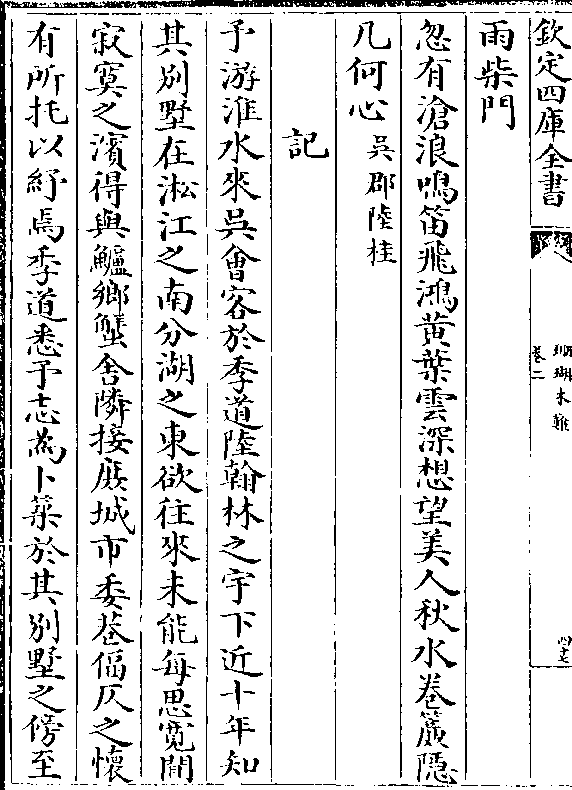 欽定四庫全書
珊瑚木難
卷二
雨柴門
忽有滄浪鳴笛飛鴻黄葉雲深想望美人秋水卷簾隐
几何心吳郡陸桂
記
予游淮水來吳會客於季道陸翰林之宇下近十年知
其别墅在淞江之南分湖之東欲往來未能每思寛閒
寂寞之濱得與鱸鄉蟹舍隣接庻城市委巷偪仄之懷
有所托以紓焉季道悉予志為卜築於其别墅之傍至